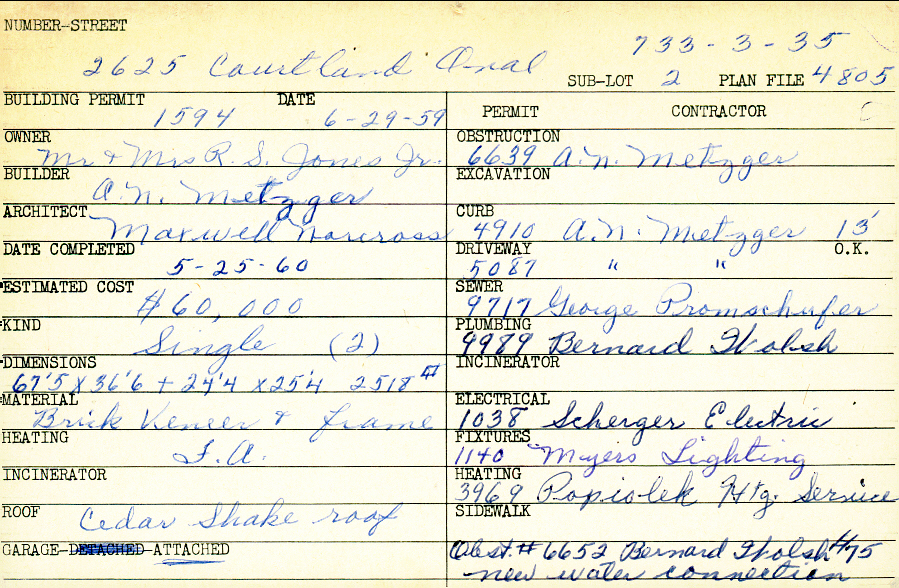 NUMBER-STREET
733-3-35
2625 Courtland Oval
SUB-LOT 2 PLAN FILE 4805
BUILDING PERMIT DATE
1594 6-29-59
OWNER
Mr & Mrs R. S. Jones Jr.
BUILDER
A. N. Metzger
ARCHITECT
Maxwell Norcross
DATE COMPLETED
5-25-60
ESTIMATED COST
$60,000
KIND
Single (2)
DIMENSIONS
67'5 X 36'6 + 24'4 X 25'4 2518
MATERIAL
Brick Veneer & frame
HEATING
F.A.
INCINERATOR
ROOF Cedar Shake roof
GARAGE-DETACHED-ATTACHED
PERMIT CONTRACTOR
OBSTRUCTION
6639 A.N. Metzger
EXCAVATION
CURB
4910 A.N. Metzger 13'
DRIVEWAY O.K.
5087 " "
SEWER
9717 George
PLUMBING
9989 Bernard
INCINERATOR
ELECTRICAL
1038 Scherger Electric
FIXTURES
1140 Myers Lighting
HEATING
3969 Popiolek Htg. Service
SIDEWALK
Obst. # 6652 Bernard $75
new water connection